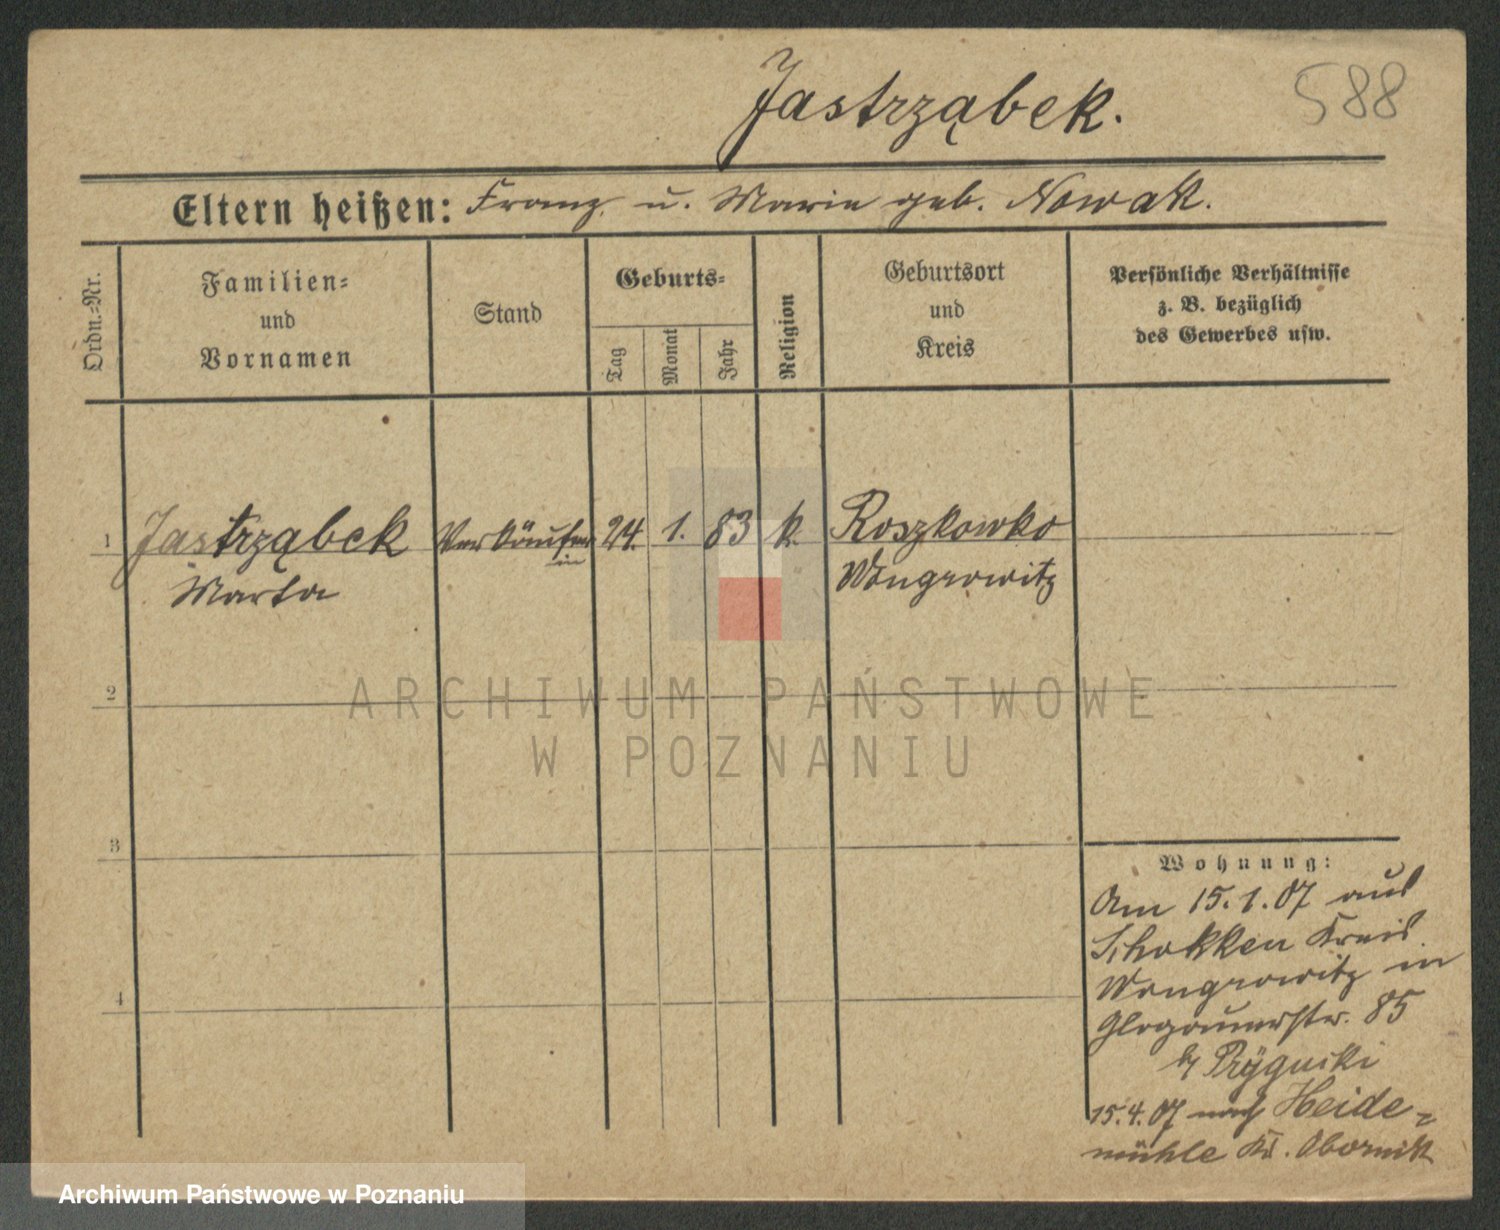 Jastrząbek.
588
Eltern heißen: Franz u. Marie geb. Nowak.
Ordn.-Nr.
Familien-
und
Vornamen
Stand
Geburts-
Tag
Monat
Jahr
Religion
Geburtsort
und
Kreis
Persönliche Verhältnisse
z. B. bezüglich
des Gewerbes usw.
1 Jastrząbek Verkäufer 24. 1. 83 k. Roszkowko
in
Marta Wongrowitz
ARCHIWUM PAŃSTWOWE
W POZNANIU
2
3
4
Wohnung:
Am 15.1.07 aus
Schokken Kreis
Wongrowitz in
Glogauerstr. 85
b/
15.4.07 nach Heide-
mühle Kr. Obornik
Archiwum Państwowe w Poznaniu